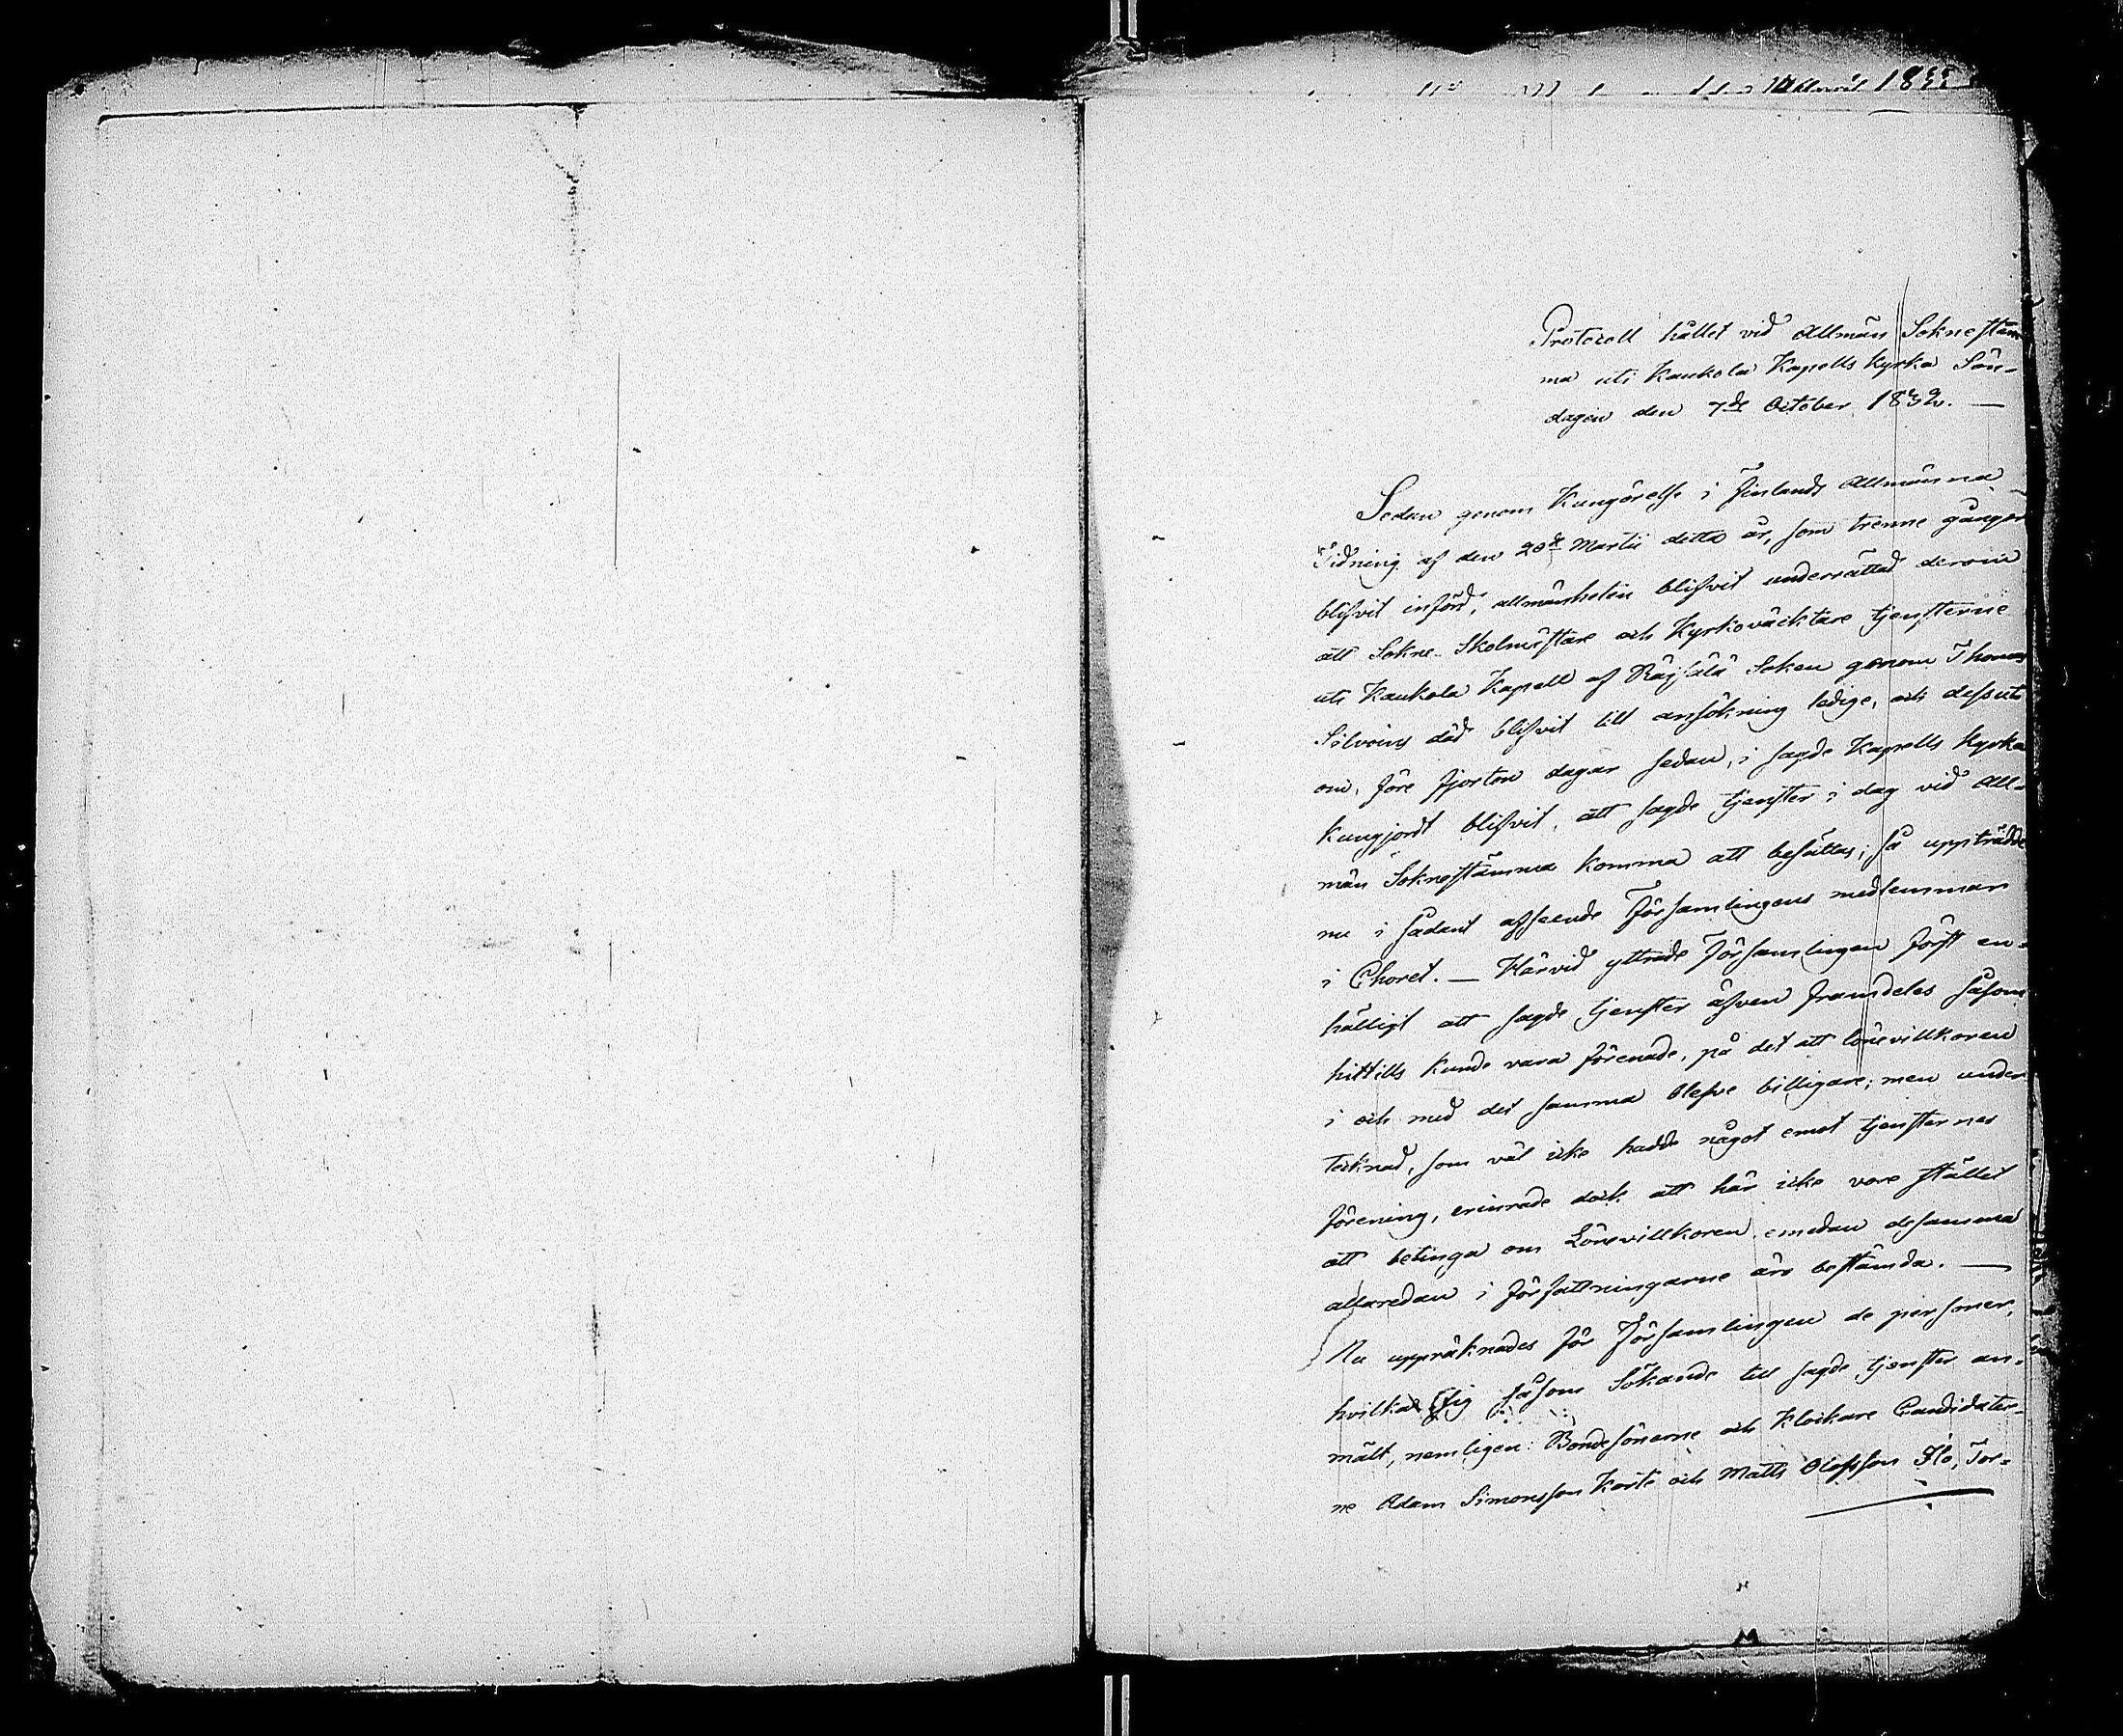 1833
Protocoll hållet vid Allmän Soknestäm
ma uti Kaukola Kapells kyrka Sön-
dagen den 7de October 1832. —
Sedan genom Kungörelse i Finlands Allmänna
Tidning af den 20de Martii detta år, som trenne gånger
blifvit införd, allmänheten blifvit underrättad derom
att Sokne-Skolmästare och Kyrkoväcktare tjensterne
uti Kaukola Kapell af Räisälä Soken genom Thomas
Silvoins död blifvit till ansökning ledige, och dessut
om, före fjorton dagar sedan, i sagde Kapells kyrka
kungjordt blifvit, att sagde tjenster i dag vid All-
män Soknestämma komma att besättas; så uppträdde
nu i sådant afseende Församlingens medlemmar
i Choret. — Härvid yttrade Församlingen först en-
hälligt att sagde tjenster äfven framdeles såsom
hittills kunde vara förenade, på det att lönevillkoren
i och med det samma blefve billigare; men under
tecknad, som väl icke hadde något emot tjensternes
förening, erinrade dock att här icke vore stället
att betinga om Lönevillkoren, emedan desamma
allaredan i författningarne äro bestämda. —
Nu uppräknades för Församlingen de personer,
hvilka sig såsom Sökande till sagde tjenster an-
mält, nemligen: Bondesönerne och Klockare Candidater-
ne Adam Simonsson Korte och Matts Olofsson Ilo, Tor-